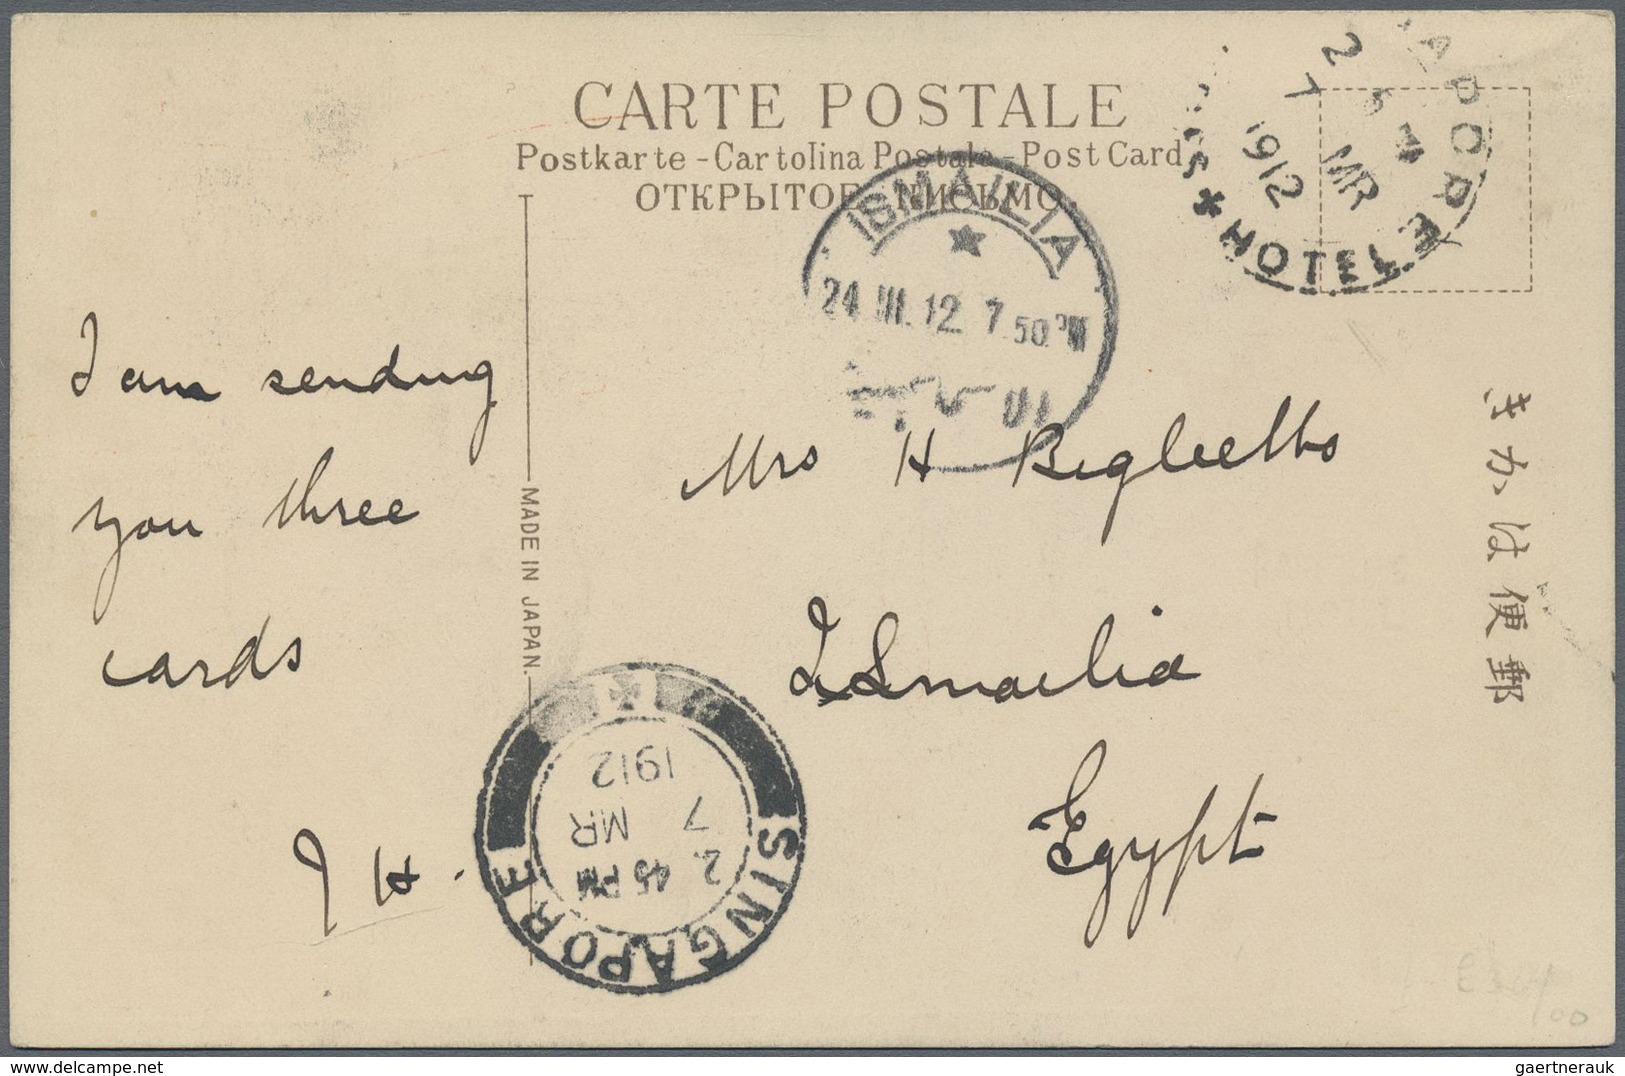 CARTE POSTALE
Postkarte - Cartolina Postale - Post Card
ОТКРЫТОЕ ПИСЬМО
ISMAILIA
24 III. 12. 7.50 PM
HOTEL
2
7 MR
1912
I am sending
you three
cards
J H.
Mrs H Biglietto
Ismailia
Egypt
MADE IN JAPAN.
きかは便郵
SINGAPORE
2. 45 PM
7 MR
1912
100
gaertnerauk